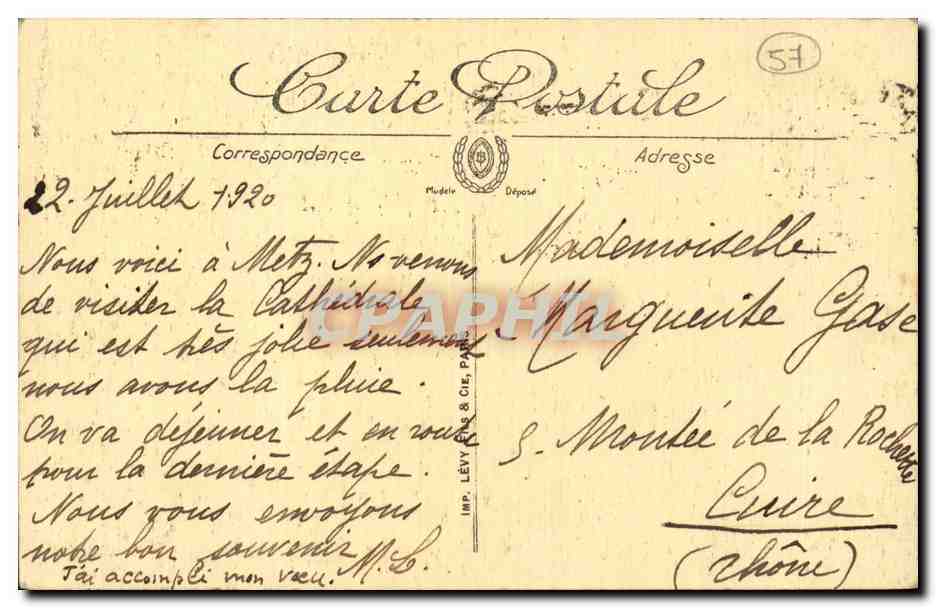 57
Carte Postale
Correspondance
Adresse
Modèle Déposé
22. Juillet 1920
Nous voici à Metz. Ns venons
de visiter la Cathédrale
qui est très jolie seulement
nous avons la pluie.
On va déjeuner et en route
pour la dernière étape.
Nous vous envoyons
notre bon souvenir
M. L.
J'ai accompli mon vœu.
IMP. LÉVY FILS & CIE, PARIS
CPAPHIL
Mademoiselle
Marguerite Gase
5. Montée de la Rochette
Cuire
(Rhône)